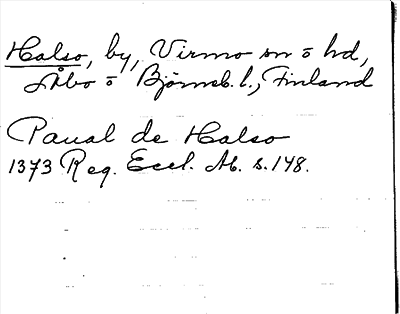 Halso, by, Virmo sn o hd,
Åbo o Björneb. l., Finland
Paual de Halso
1373 Reg. Eccl. Ab. s. 148.